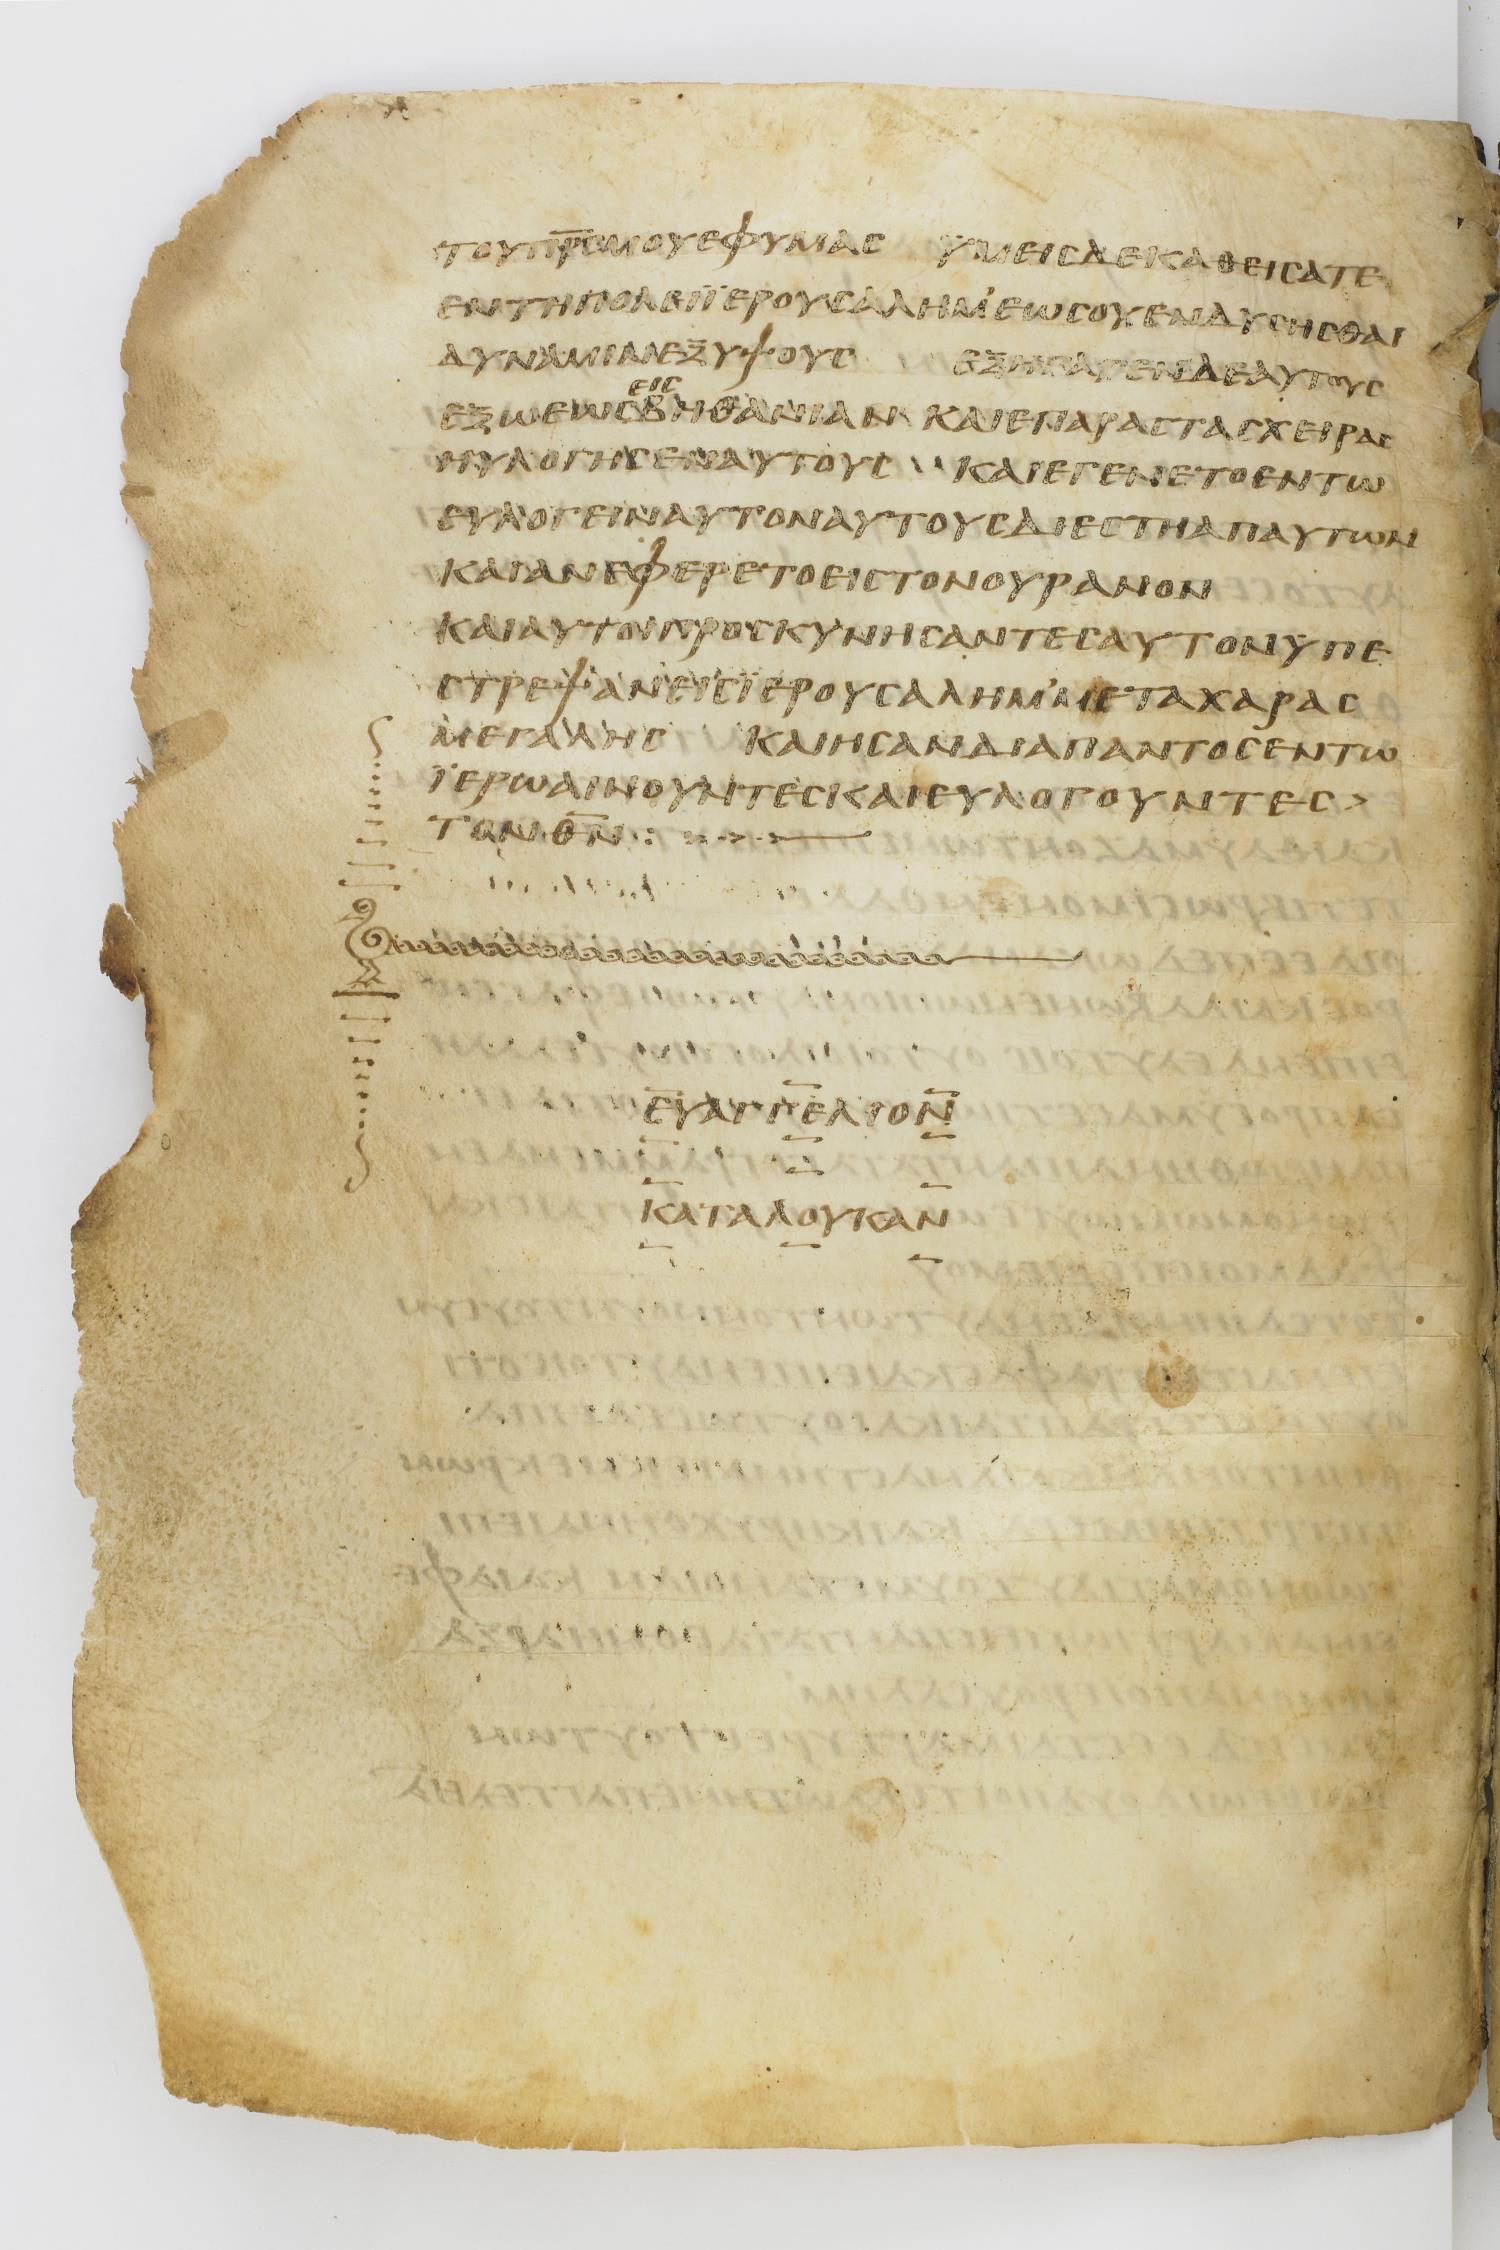 ΤΟΥΠΡ̅Σ̅ΜΟΥΕΦΥΜΑΣ ΥΜΕΙΣΔΕΚΑΘΕΙΣΑΤΕ
ΕΝΤΗΠΟΛΕΙΪΕΡΟΥΣΑΛΗΜ’ΕΩΣΟΥΕΝΔΥΣΗΣΘΑΙ
ΔΥΝΑΜΙΝΕΞΥΨΟΥΣ ΕΞΗΓΑΓΕΝΔΕΑΥΤΟΥΣ
ΕΞΩΕΩΣΕΙΣΒΗΘΑΝΙΑΝ ΚΑΙΕΠΑΡΑΣΤΑΣΧΕΙΡΑΣ
ΗΥΛΟΓΗΣΕΝΑΥΤΟΥΣ ΚΑΙΕΓΕΝΕΤΟΕΝΤΩ
ΕΥΛΟΓΕΙΝΑΥΤΟΝΑΥΤΟΥΣΔΙΕΣΤΗΑΠΑΥΤΩΝ
ΚΑΙΑΝΕΦΕΡΕΤΟΕΙΣΤΟΝΟΥΡΑΝΟΝ
ΚΑΙΑΥΤΟΙΠΡΟΣΚΥΝΗΣΑΝΤΕΣΑΥΤΟΝΥΠΕ
ΣΤΡΕΨΑΝΕΙΣΪΕΡΟΥΣΑΛΗΜ’ΜΕΤΑΧΑΡΑΣ
ΜΕΓΑΛΗΣ ΚΑΙΗΣΑΝΔΙΑΠΑΝΤΟΣΕΝΤΩ
ΪΕΡΩΑΙΝΟΥΝΤΕΣΚΑΙΕΥΛΟΓΟΥΝΤΕΣ>
ΤΟΝΘ̅Ν̅:
ΕΥΑΓΓΕΛΙΟΝ
ΚΑΤΑΛΟΥΚΑΝ